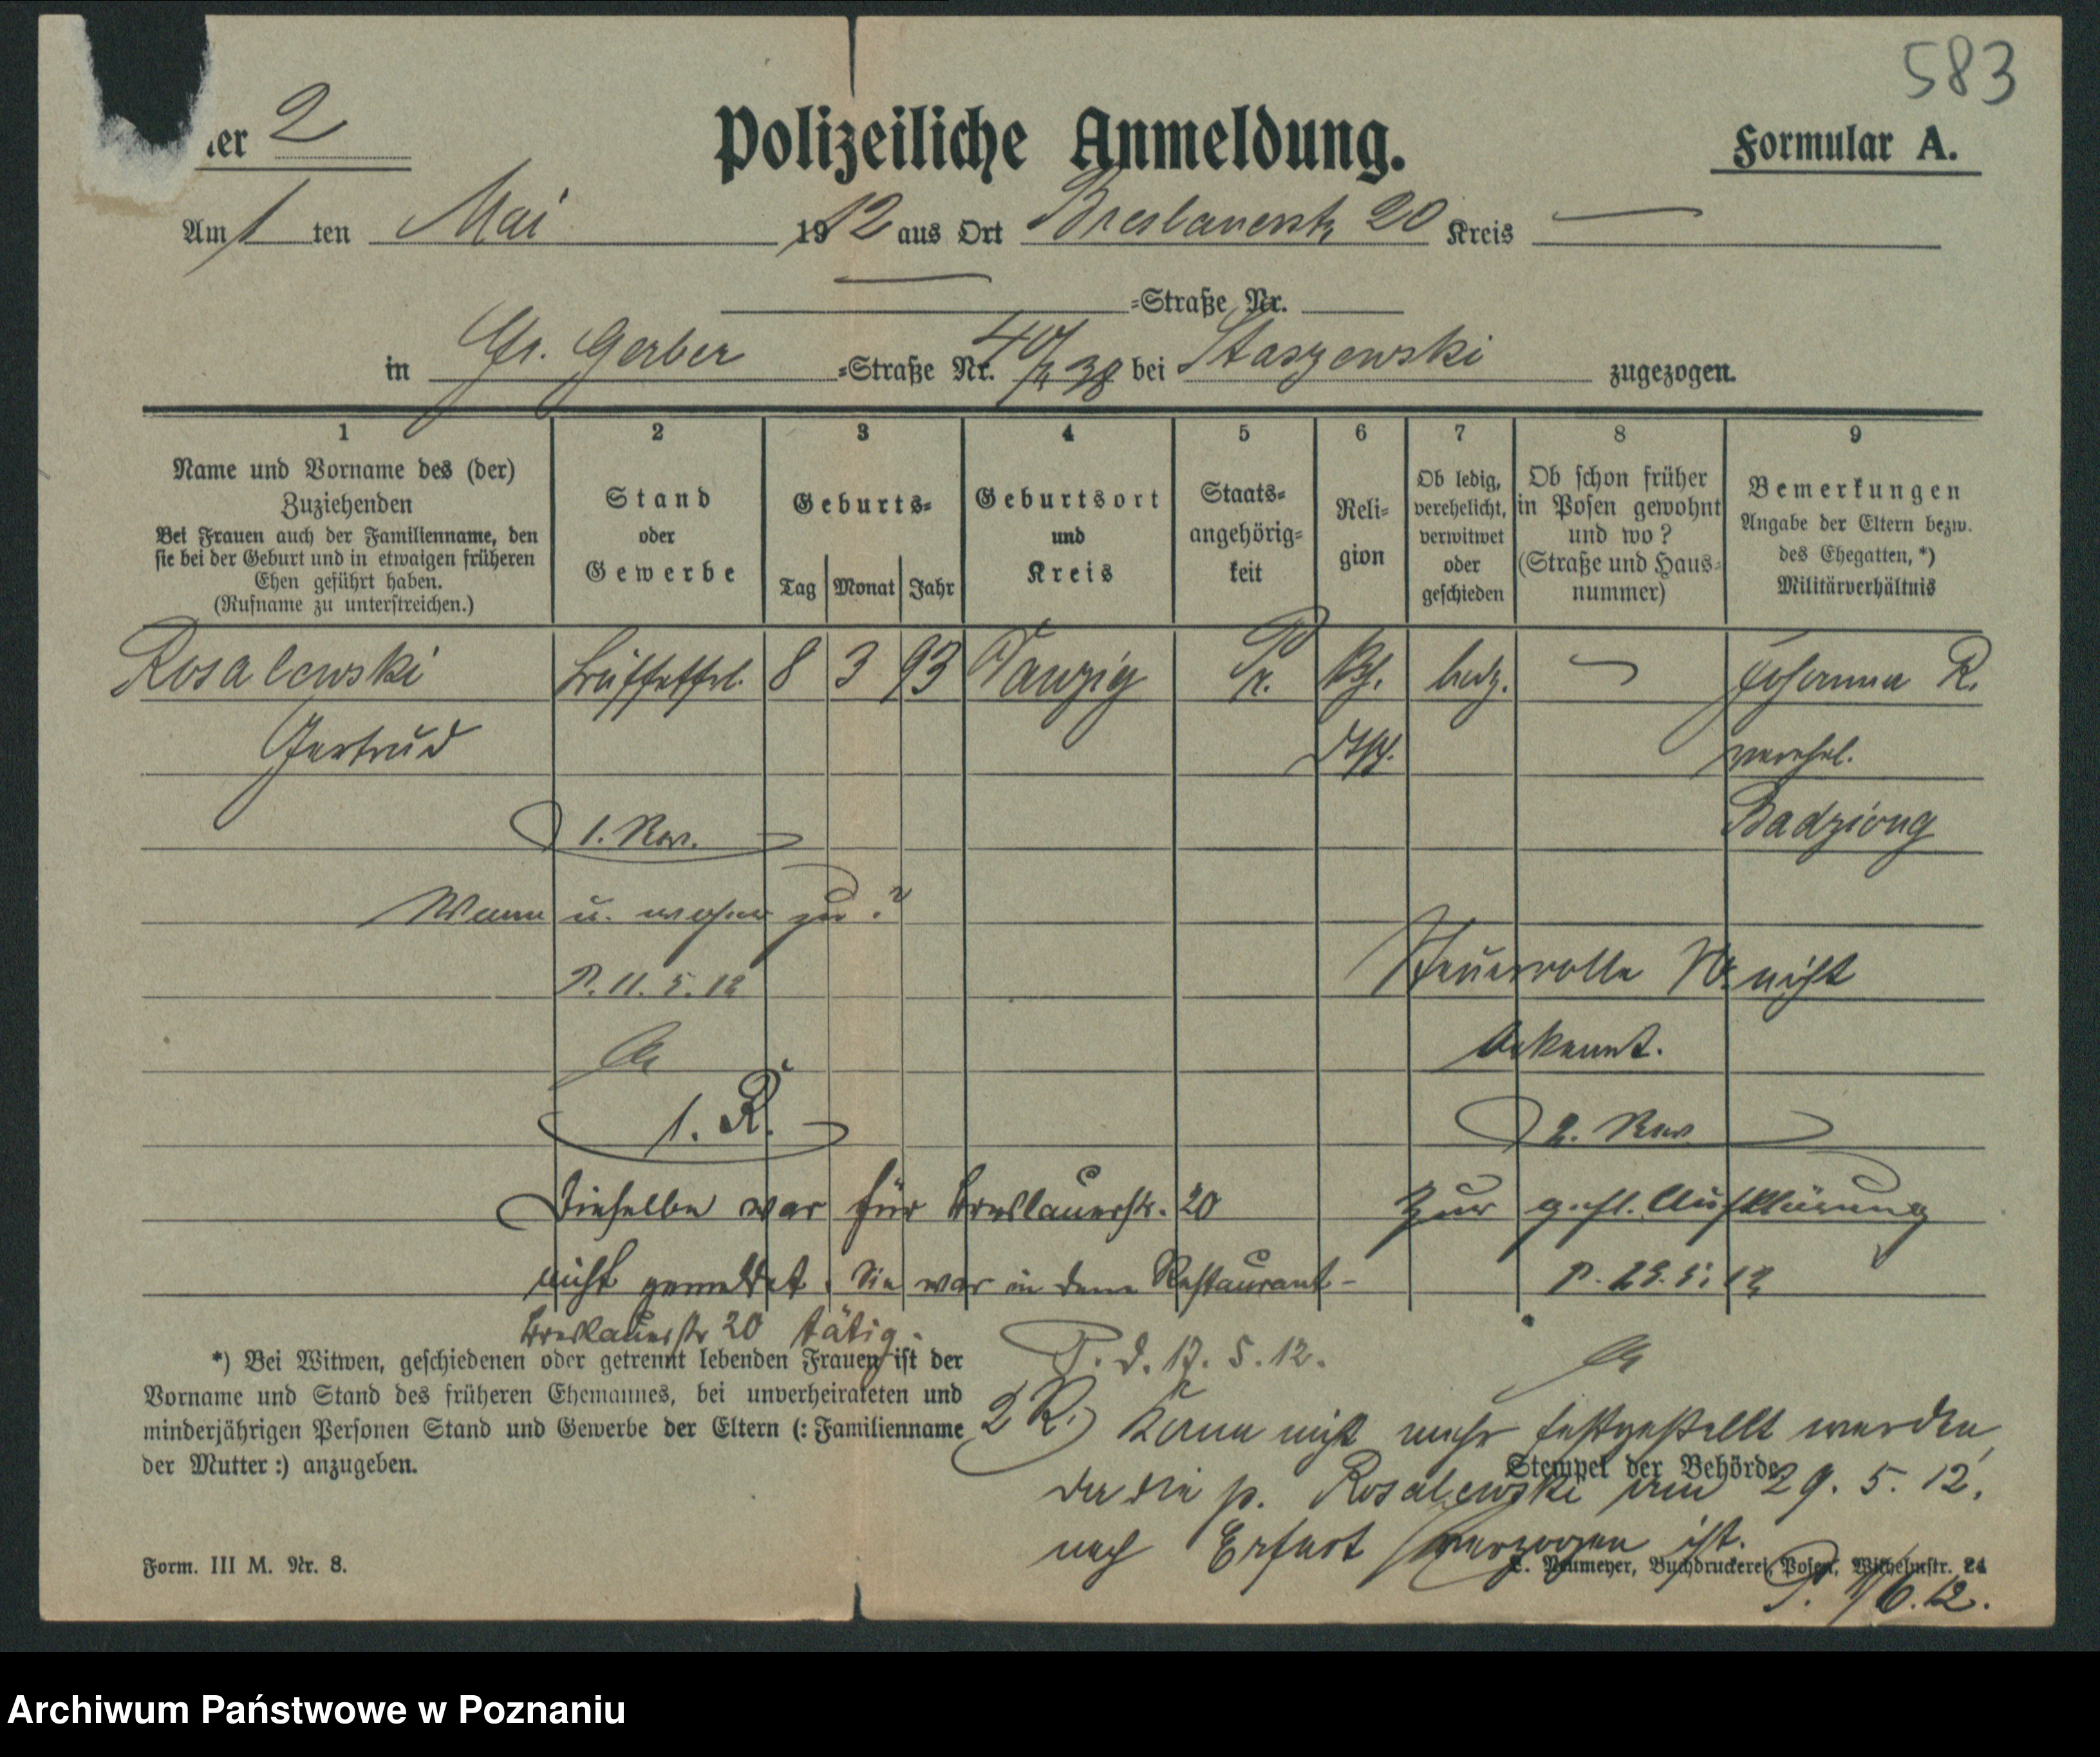 583
er 2
Polizeiliche Anmeldung.
Formular A.
Am 1 ten Mai 1912 aus Ort Breslauerstr. 20 Kreis —
— -Straße Nr.
in Gr. Gerber -Straße Nr. 40 38 bei Staszewski zugezogen.
1 2 3 4 5 6 7 8 9
Name und Vorname des (der)
Zuziehenden
Bei Frauen auch der Familienname, den
sie bei der Geburt und in etwaigen früheren
Ehen geführt haben.
(Rufname zu unterstreichen.)
Stand
oder
Gewerbe
Geburts-
Tag Monat Jahr
Geburtsort
und
Kreis
Staats-
angehörig-
keit
Reli-
gion
Ob ledig,
verehelicht,
verwitwet
oder
geschieden
Ob schon früher
in Posen gewohnt
und wo?
(Straße und Haus-
nummer)
Bemerkungen
Angabe der Eltern bezw.
des Ehegatten, *)
Militärverhältnis
Rosalewski Büffettfrl. 8 3 93 Danzig Pr. led. — Johanna R.
Gertrud verehel.
Badziong
1. Rev.
Wann u. woher zu?
P. 11. 5. 12
Steuerrolle Nr. nicht
bekannt.
1. R.
2. Rev.
Dieselbe war für Breslauerstr. 20
nicht gemeldet. Sie war in dem Restaurant-
Breslauerstr 20 tätig.
zur gefl. Aufklärung
P. 23. 5. 12
P. d. 17. 5. 12.
*) Bei Witwen, geschiedenen oder getrennt lebenden Frauen ist der
Vorname und Stand des früheren Ehemannes, bei unverheirateten und
minderjährigen Personen Stand und Gewerbe der Eltern (: Familienname
der Mutter :) anzugeben.
2 R.) Kann nicht mehr festgestellt werden,
Stempel der Behörde
da die p. Rosalewski am 29. 5. 12.
nach Erfurt verzogen ist.
Form. III M. Nr. 8.
E. Neumeyer, Buchdruckerei, Posen, Wilhelmstr. 24
P. 1/6. 12.
Archiwum Państwowe w Poznaniu